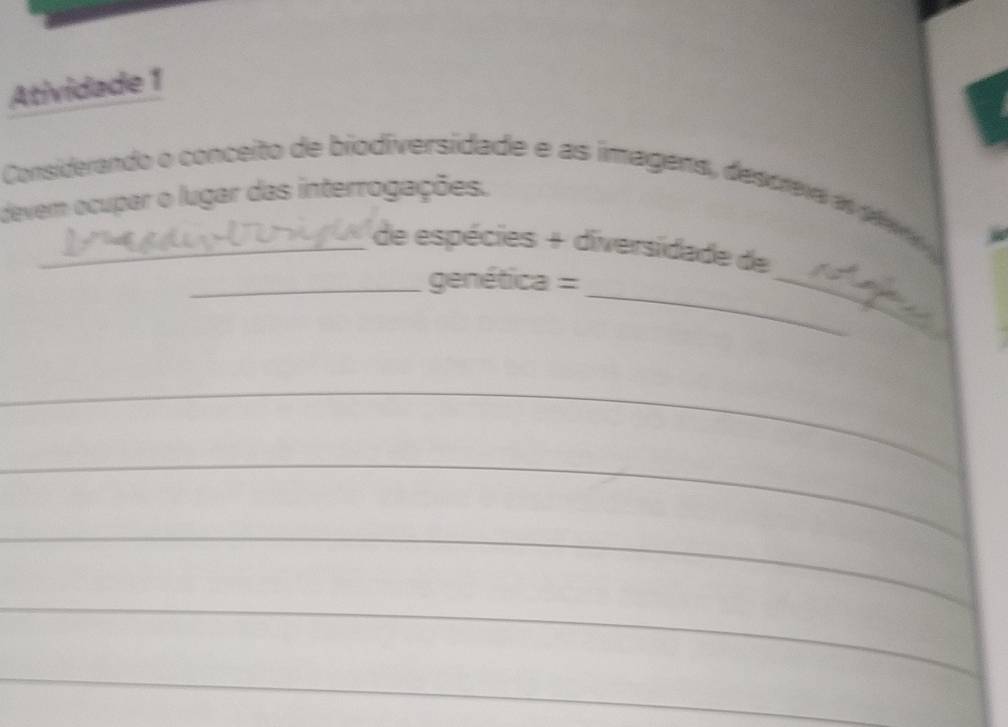 Atividade 1
Considerando o conceito de biodiversidade e as imagens, descreva as
devem ocupar o lugar das interrogações.
de espécies + diversidade de
genética =